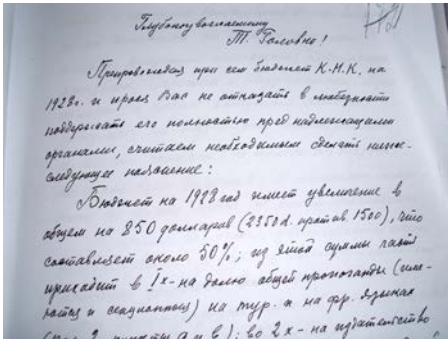 Глубокоуважаемому
Т. Головко!
Препровождая при сем бюджет К.Н.К. на
1928г. и прося Вас не отказать в любезности
поддержать его полностью пред надлежащими
органами, считаем необходимым сделать ниже-
следующее пояснение:
Бюджет на 1928 год имеет увеличение в
общем на 850 долларов (2350 d. против 1500), что
составляет около 50%; из этой суммы часть
приходит в Iх - на долю общей пропоганды (
и секционной) на тур. и на фр. языках
пункты а и в); во 2х - на издательство